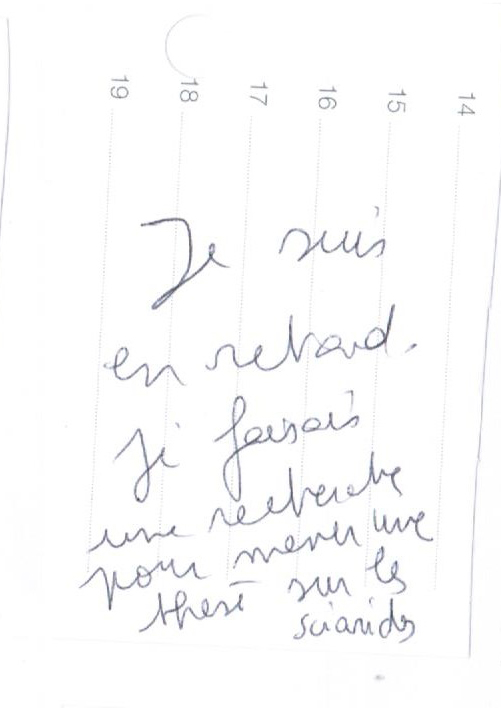 19 18 17 16 15 14
Je suis
en retard.
Je faisais
une recherche
pour mener une
these sur les
sciarides